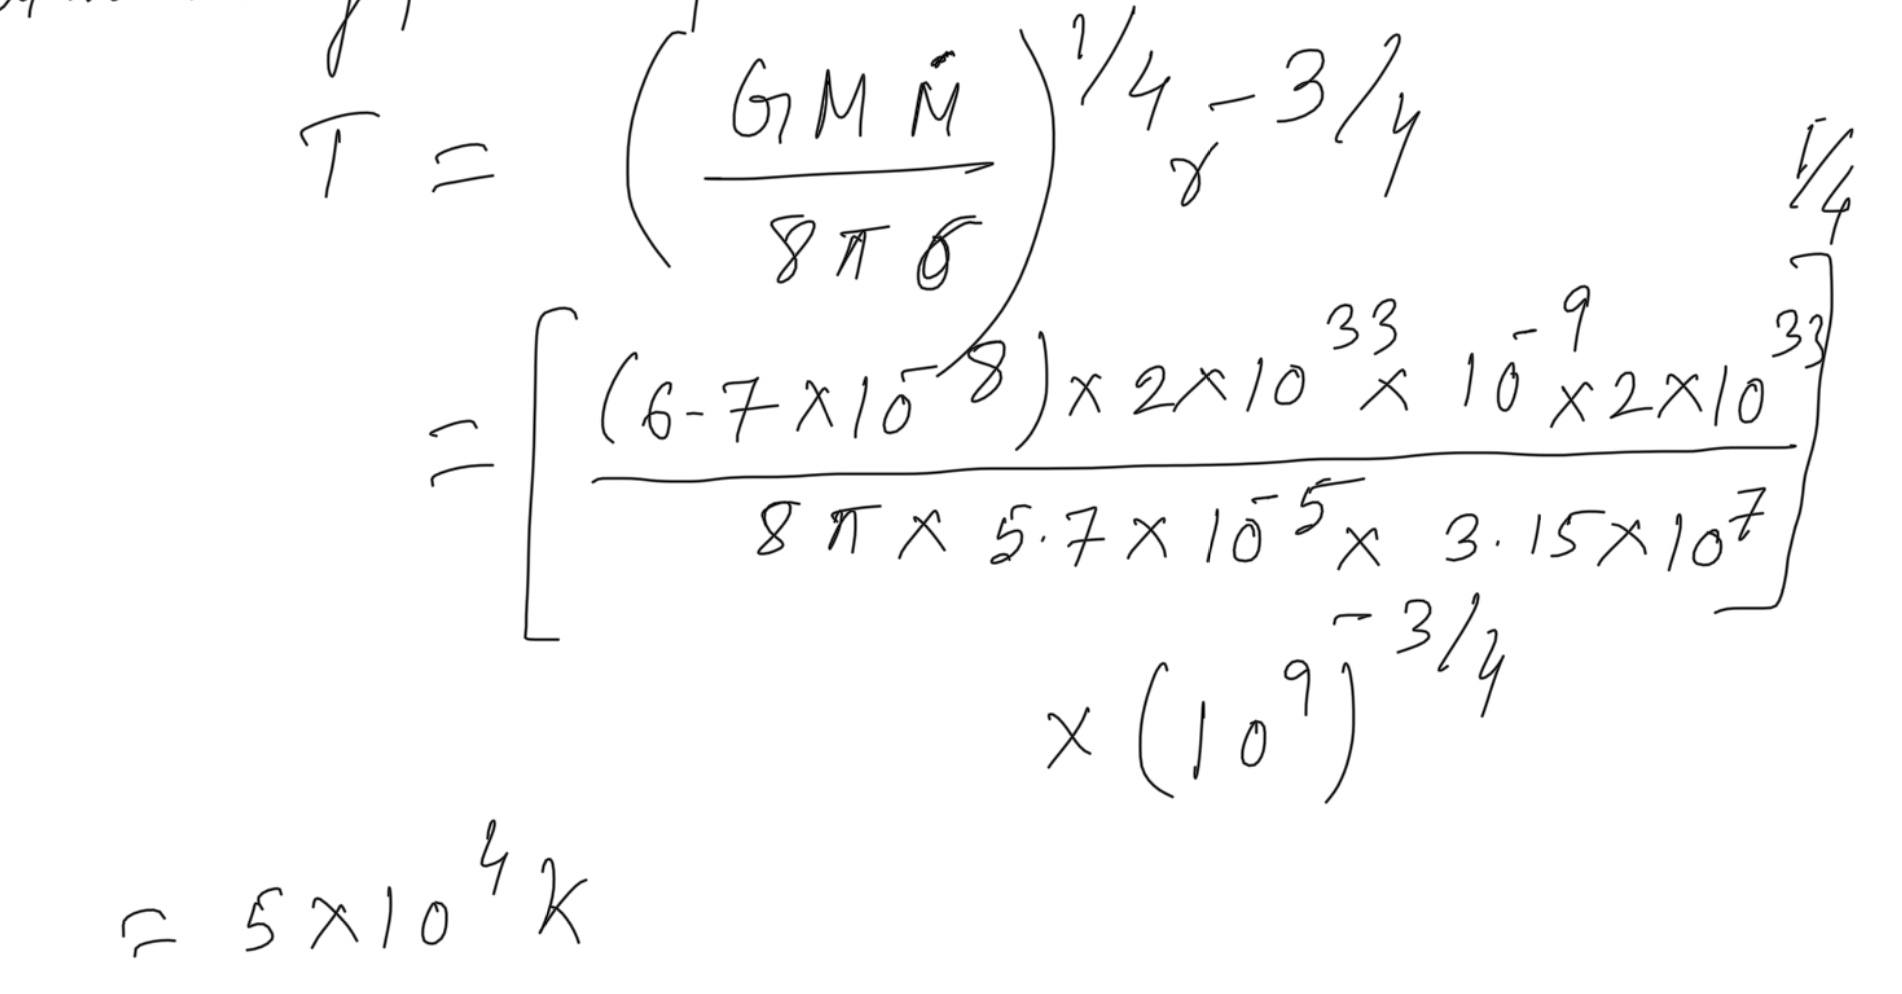 T = (G M Ṁ / 8 π σ)^1/4 r^-3/4
= [(6.7 × 10^-8) × 2 × 10^33 × 10^-9 × 2 × 10^33 / 8 π × 5.7 × 10^-5 × 3.15 × 10^7]^1/4
× (10^9)^-3/4
= 5 × 10^4 K